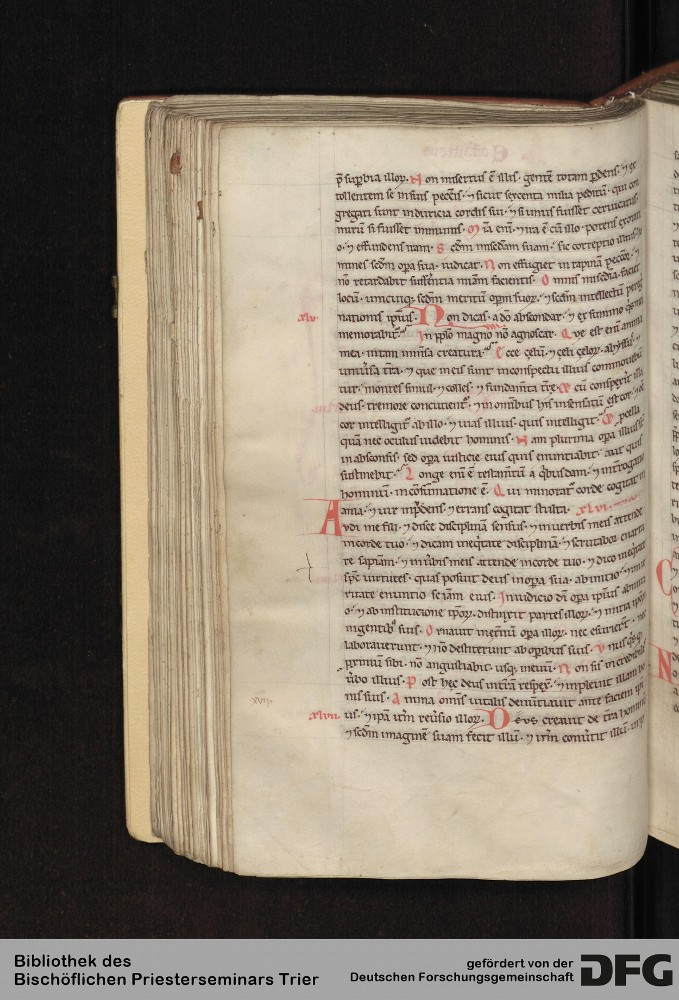 p̄ supbia illoꝝ. Non misertus ē illis. gentē totam ꝑdens. ⁊ ex
tollentem se in suis peccatis. ⁊ sicut sexcenta milia peditū. qui con
gregati sunt induricia cordis sui. ⁊ si unus fuisset ceruicatus.
mirū si fuisset immunis. Mia enī. ⁊ ira ē cū illo. potens exorati
o. ⁊ effundens iram. Scdm miam suam. sic correptio illius ho
mines scdm oꝑa sua. iudicat. Non effugiet in rapina peccator. ⁊
nō retardabit sufferentia miam facientis. Omnis misedia. faciet
locū. unicuiqꝫ scdm meritū oꝑum suoꝝ. ⁊ scdm intellectū pereg
xlv. nationis ipius. Non dicas. a dō abscondar. ⁊ ex summo qs mei
memorabit. In pplo magno nō agnoscar. Que est enī anima
mea. in tam inmsa creatura. Ecce celū. ⁊ celi celoꝝ. abyssus. ⁊
uniūsa tr̄a. ⁊ que in eis sunt in conspectu illius commouebū
tur. montes simul. ⁊ colles. ⁊ fundamta tr̄e. ⁊ cū conspexit illa
deus. tremore concutient. ⁊ in omnibus his insensatū est cor. ⁊ oē
cor intelligit ab illo. ⁊ uias illius. quis intelligit. ⁊ procella
quā nec oculus uidebit hominis. Nam plurima oꝑa illius st
in absconsis. sed oꝑa iusticie eius quis enuntiabit. aut quis
sustinebit. Longe enī ē testamtū a qbusdam. ⁊ int̄rogatio
hominū. in consūmatione ē. Qui minorat corde cogitat in
ania. ⁊ uir impdens. ⁊ errans cogitat stulta. xlvi.
Audi me fili. ⁊ disce disciplinā sensus. ⁊ in uerbis meis attende
in corde tuo. ⁊ dicam in eqtate disciplinā. ⁊ scrutabor enarra
re sapiam. ⁊ in ūbis meis attende in corde tuo. ⁊ dico in eqtate
spc uirtutes. quas posuit deus in oꝑa sua. ab initio. ⁊ in ue
ritate enuntio sciam eius. In iudicio di oꝑa ipius ab initi
o. ⁊ ab institucione ipoꝝ. distinxit partes illoꝝ. ⁊ initia ipoꝝ in
in gentibꝰ suis. Ornauit in et̄nū oꝑa illoꝝ. nec esurierūt. nec
laborauerunt. ⁊ nō destiterunt ab oꝑibus suis. Unus qsqꝫ
proximū sibi. nō angustiabit. usqꝫ in euū. Non sis incredibilis
ūbo illius. Post hec deus in tr̄am respex. ⁊ impleuit illam bo
xvii. nis suis. Anima omis uitalis denūtiauit ante faciem ipi
xlvii. us. ⁊ ipā itm reūsio illoꝝ. Deus creauit de tr̄a hominē
⁊ scdm imaginē suam fecit illū. ⁊ itm conūtit illū. in ip
Bibliothek des
Bischöflichen Priesterseminars Trier
gefördert von der
Deutschen Forschungsgemeinschaft
DFG